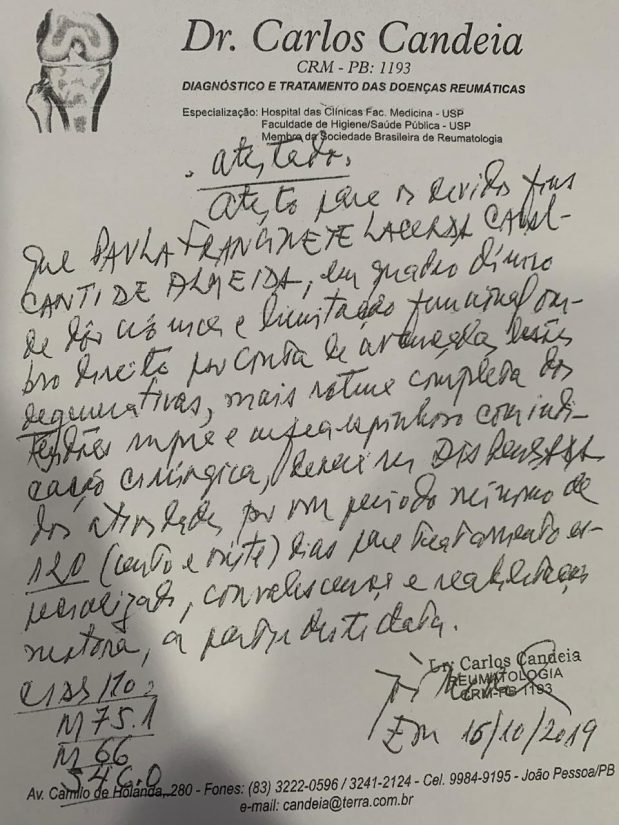 Dr. Carlos Candeia
CRM - PB: 1193
DIAGNÓSTICO E TRATAMENTO DAS DOENÇAS REUMÁTICAS
Especialização: Hospital das Clínicas Fac. Medicina - USP
Faculdade de Higiene/Saúde Pública - USP
Membro da Sociedade Brasileira de Reumatologia
Atestado.
Atesto para os devidos fins
que PAULA FRANCINETE LACERDA CAVAL-
CANTI DE ALMEIDA, em quadro
de dor crônica e limitação funcional om-
bro direito por conta de lesões
degenerativas, mais rotura completa dos
tendões supra e infra-espinhoso com indi-
cação cirúrgica, deverá ser DISPENSADA
das atividades por um período mínimo de
120 (cento e vinte) dias para tratamento es-
pecializado, convalescença e reabilitação
motora, a partir desta data.
Dr. Carlos Candeia
REUMATOLOGIA
CRM-PB 1193
Em 15/10/2019
CIDS/10:
M 75.1
M 66
S46.0
Av. Camilo de Holanda, 280 - Fones: (83) 3222-0596 / 3241-2124 - Cel. 9984-9195 - João Pessoa/PB
e-mail: candeia@terra.com.br